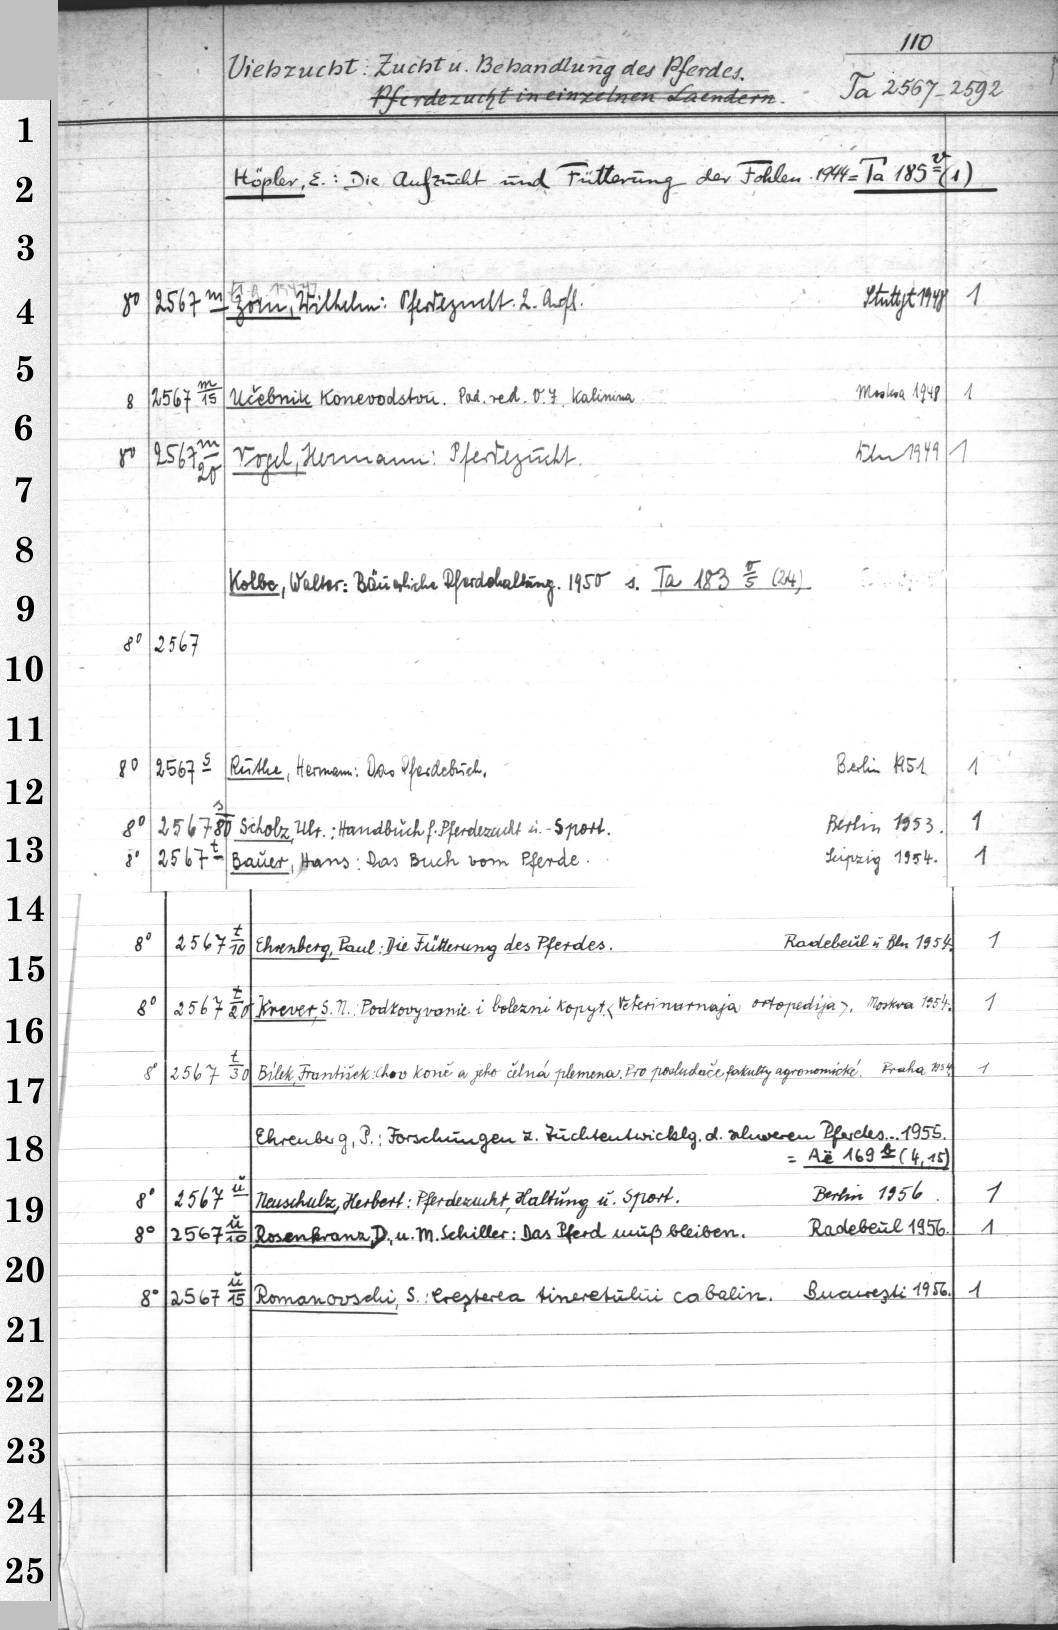 110
Viehzucht: Zucht u. Behandlung des Pferdes.
Pferdezucht in einzelnen Laendern.
Ta 2567-2592
1
2 Höpler, E.: Die Aufzucht und Fütterung der Fohlen. 1944 = Ta 185 v (1)
3
4 8° 2567 m Zorn, Wilhelm: Pferdezucht. 2. Aufl. Stuttgt 1948 1
5
8 2567 m/15 Učebnik Konevodstvu. Pod. red. V. I. Kalinina Moskva 1948 1
6
8° 2567 m/20 Vogel, Hermann: Pferdezucht. 1949 1
7
8
Kolbe, Walter: Bäuerliche Pferdehaltung. 1950 s. Ta 183 v/5 (24)
9
8° 2567
10
11
8° 2567 s Ruthe, Hermann: Das Pferdebuch. Berlin 1951 1
12
8° 2567 s/80 Scholz, Ulr.: Handbuch f. Pferdezucht u. -Sport. Berlin 1953. 1
13 8° 2567 t Bauer, Hans: Das Buch vom Pferde. Leipzig 1954. 1
14
8° 2567 t/10 Ehrenberg, Paul: Die Fütterung des Pferdes. Radebeul u Bln 1954. 1
15
8° 2567 t/20 Krever, S. N.: Podkovyvanie i bolezni kopyt. <Veterinarnaja ortopedija>. Moskva 1954. 1
16
8° 2567 t/30 Bílek, František: Chov koně a jeho čelná plemena. Pro posluchače fakulty agronomické. Praha 1954. 1
17
Ehrenberg, P.: Forschungen z. Zuchtentwicklg. d. schweren Pferdes... 1955.
18 = Aë 169 (4,15)
19 8° 2567 u Neuschulz, Herbert: Pferdezucht, Haltung u. Sport. Berlin 1956. 1
8° 2567 u/10 Rosenkranz, D. u. M. Schiller: Das Pferd muß bleiben. Radebeul 1956. 1
20
8° 2567 u/15 Romanovschi, S.: Creşterea tineretului cabalin. Bucureşti 1956. 1
21
22
23
24
25